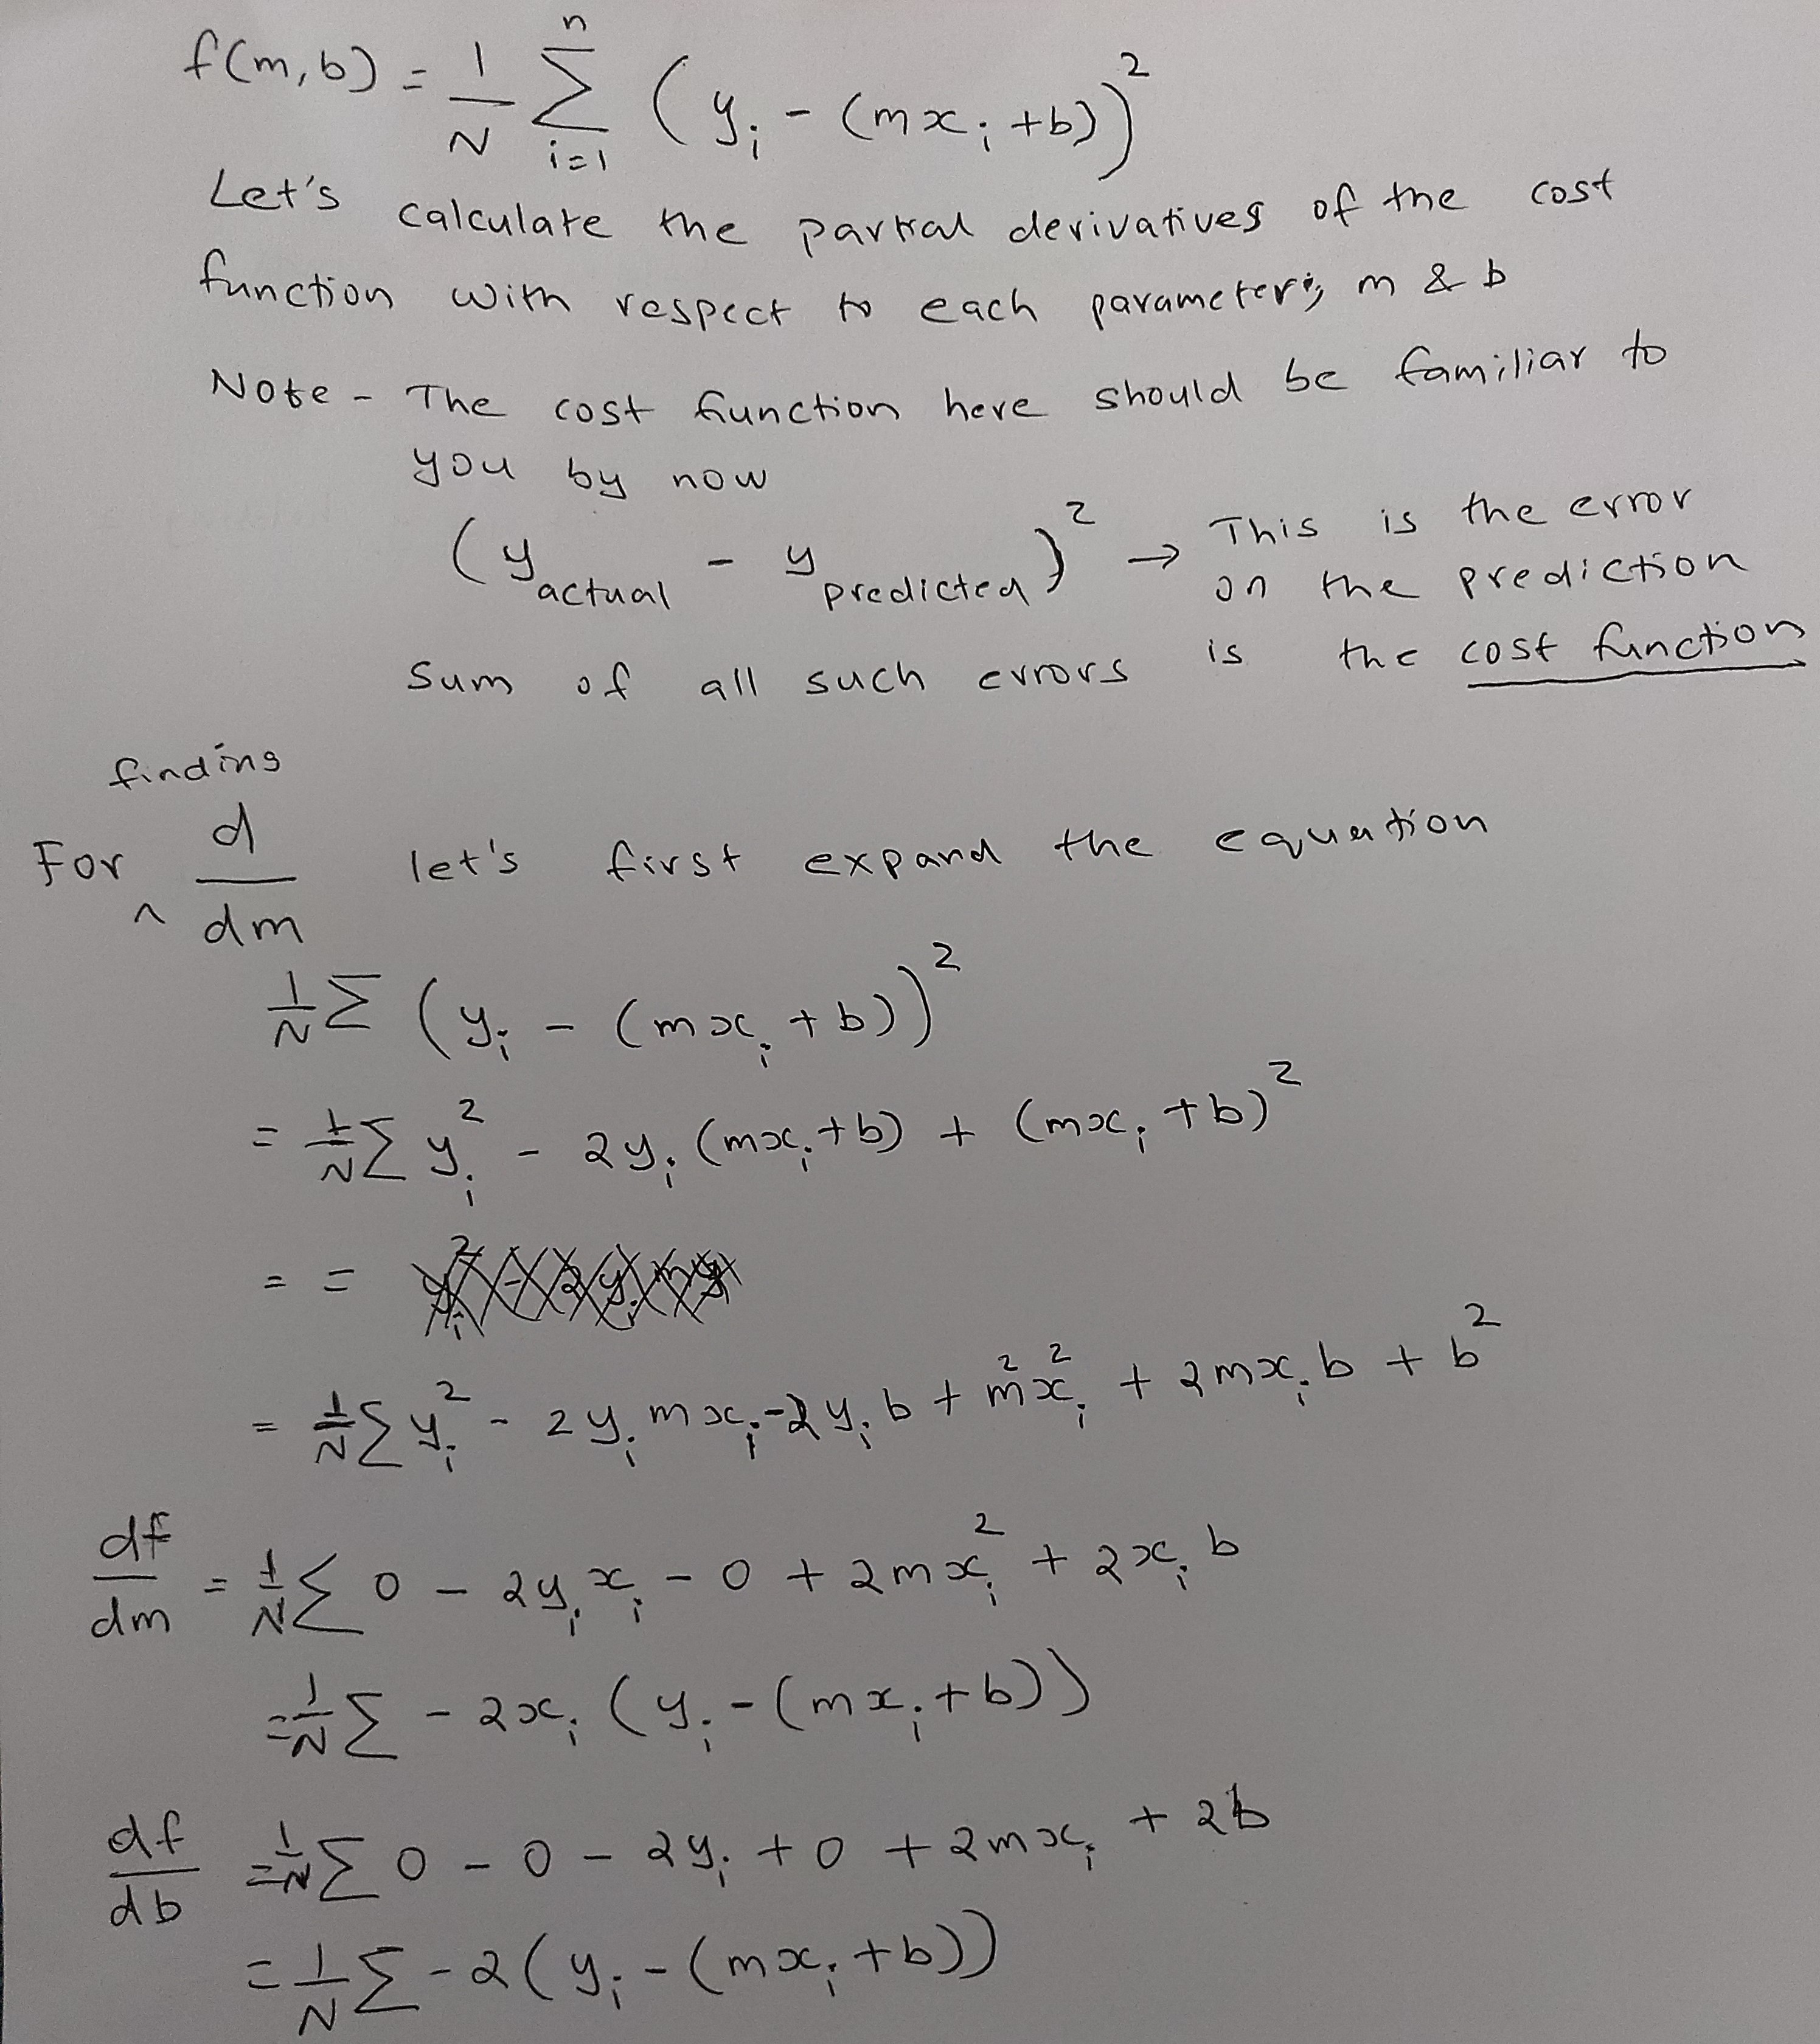 f(m,b) = 1/N Σ_{i=1}^{n} (y_i - (mx_i + b))^2
Let's calculate the partial derivatives of the cost
function with respect to each parameter's, m & b
Note - The cost function here should be familiar to
you by now
(y_actual - y_predicted)^2 → This is the error
on the prediction
Sum of all such errors is the cost function
finding
For ^ d/dm let's first expand the equation
1/N Σ (y_i - (mx_i + b))^2
= 1/N Σ y_i^2 - 2y_i (mx_i + b) + (mx_i + b)^2
= =
= 1/N Σ y_i^2 - 2y_i mx_i - 2y_i b + m^2 x_i^2 + 2mx_i b + b^2
df/dm = 1/N Σ 0 - 2y_i x_i - 0 + 2mx_i^2 + 2x_i b
= 1/N Σ - 2x_i (y_i - (mx_i + b))
df/db = 1/N Σ 0 - 0 - 2y_i + 0 + 2mx_i + 2b
= 1/N Σ - 2(y_i - (mx_i + b))